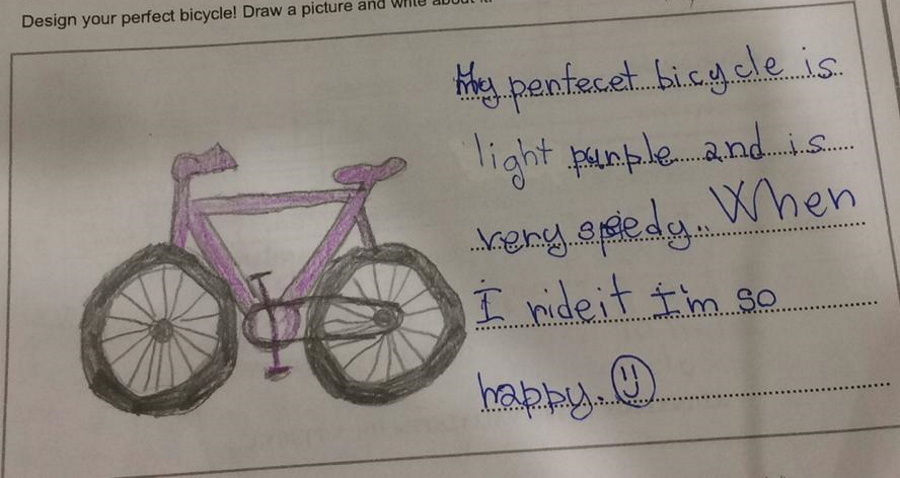 Design your perfect bicycle! Draw a picture and write about it.
My penfecet bicycle is
light punple and is
veny speedy. When
I nide it I'm so
happy.